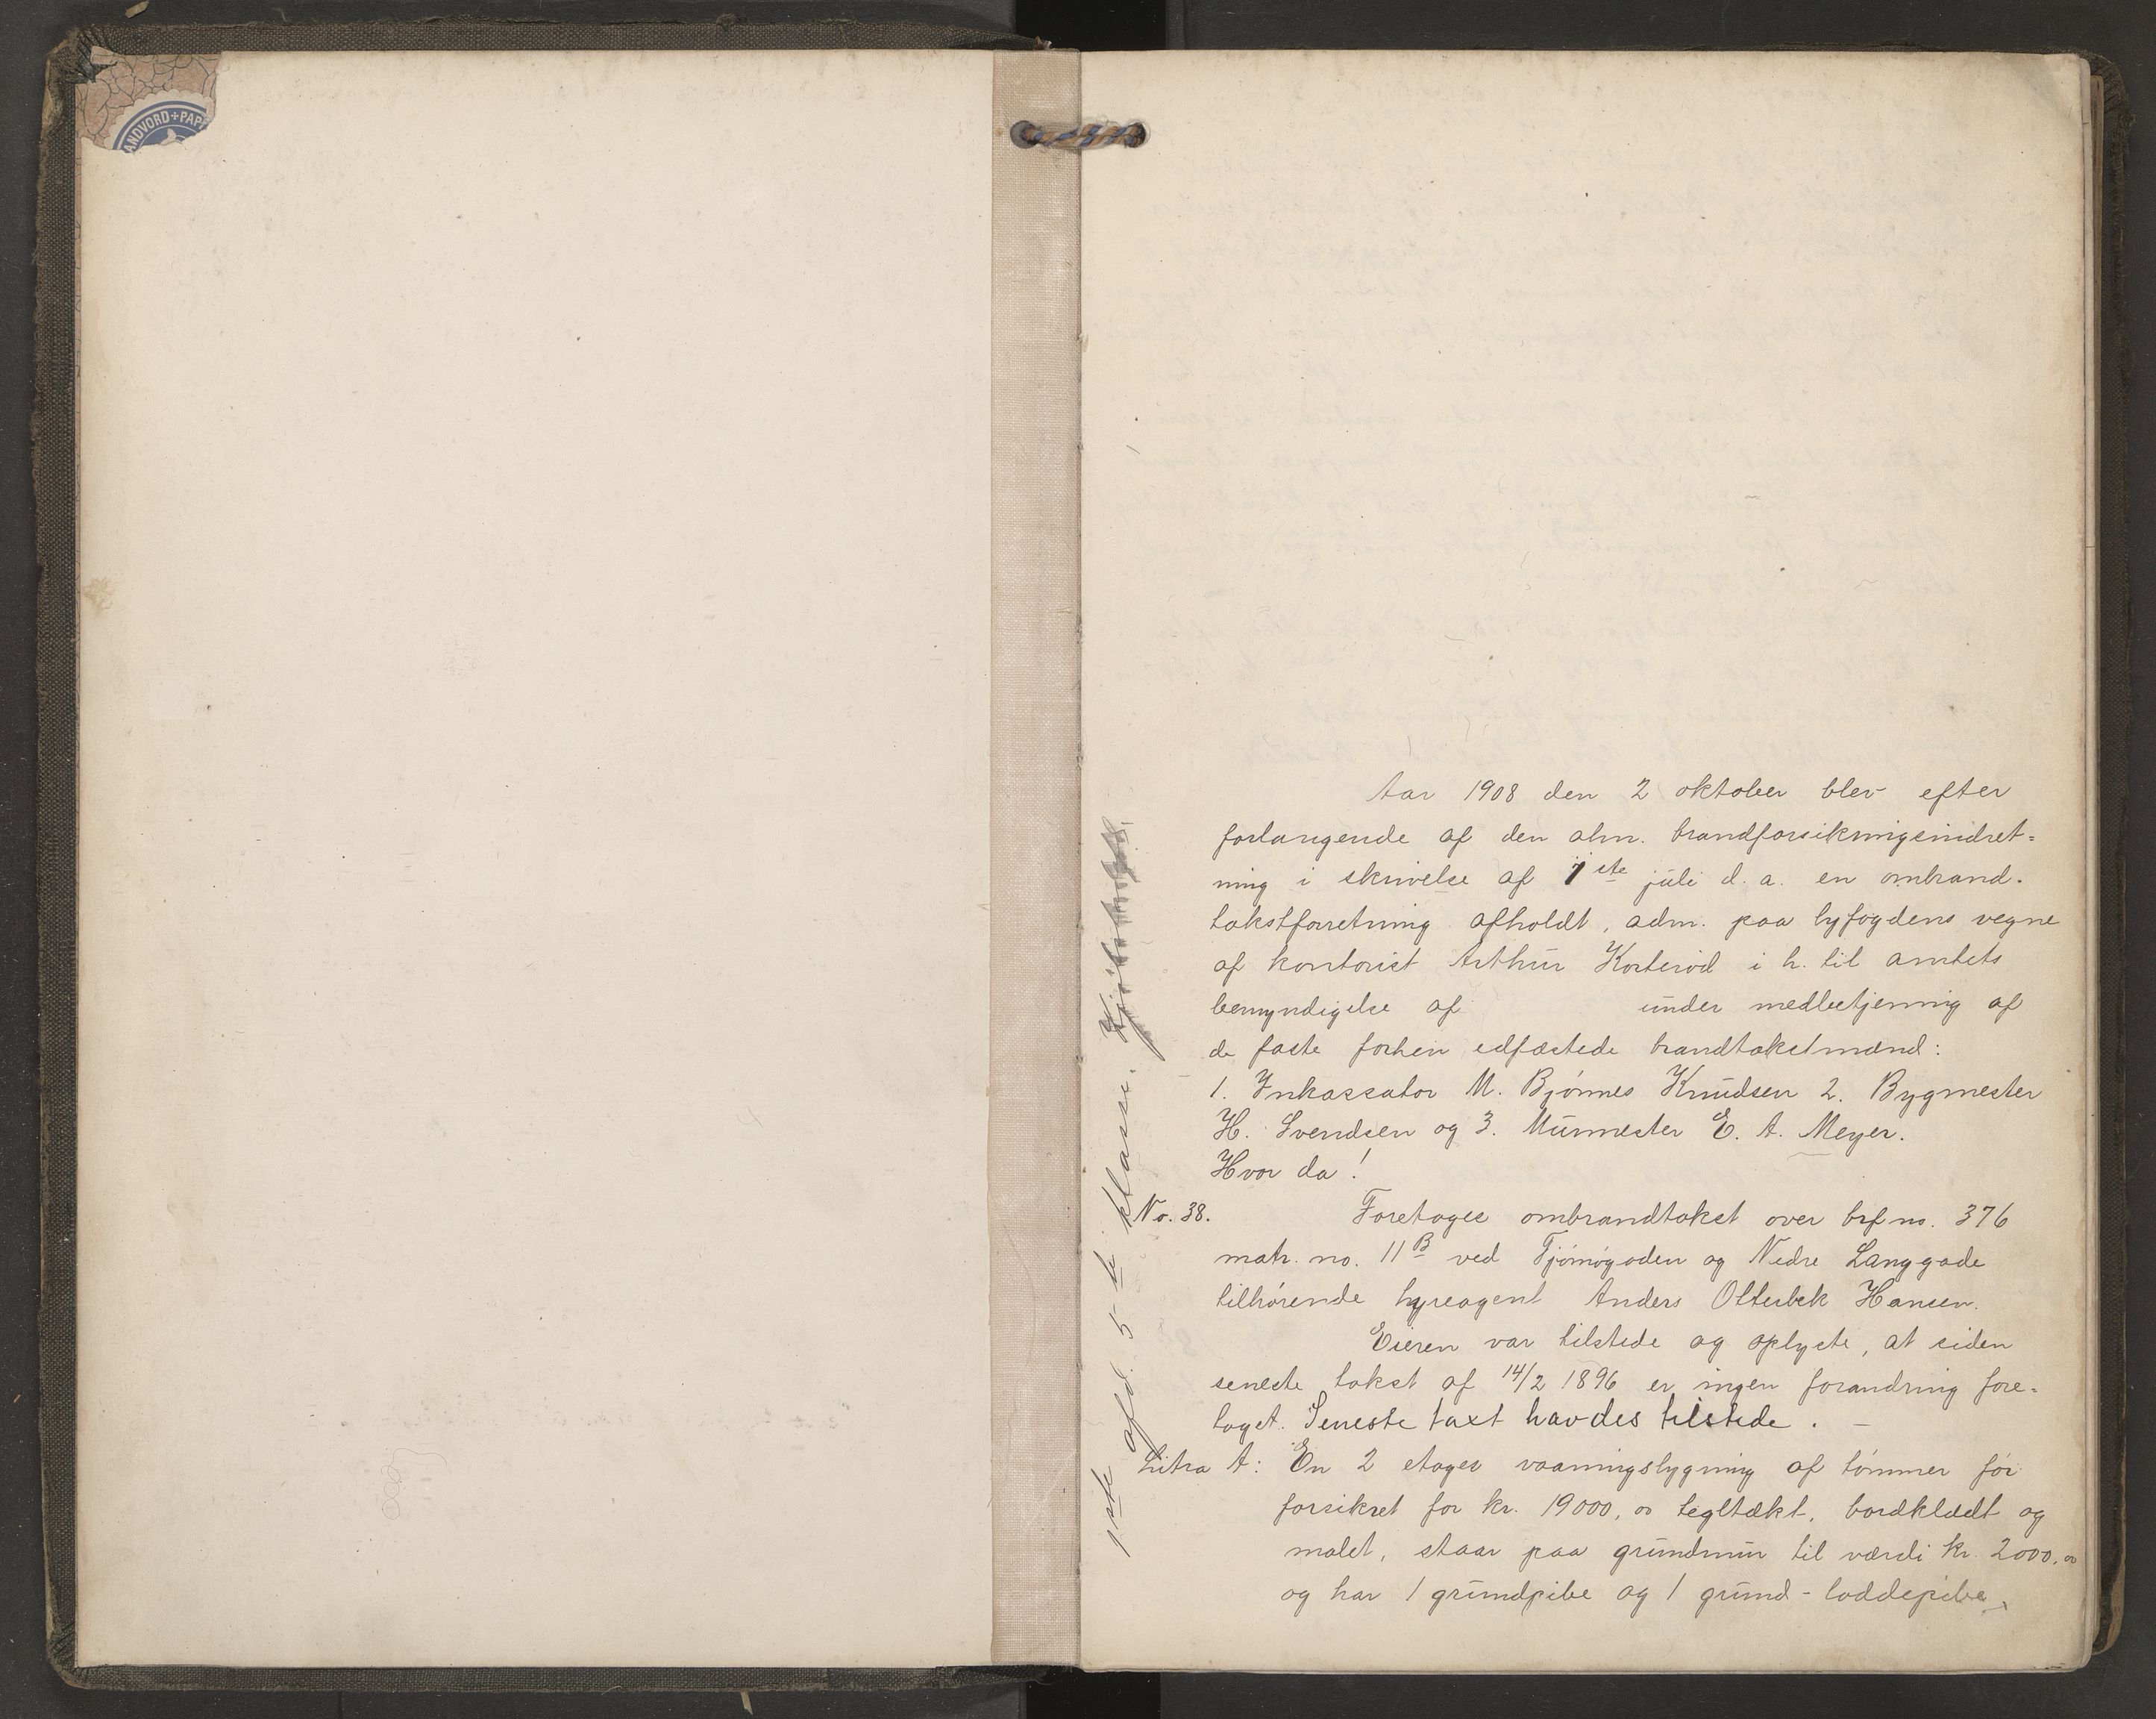 ANDVORD+PAP
Aar 1908 den 2 oktober blev efter
forlangende af den alm. brandforsikringsindret=
ning i skrivelse af 1ste juli d. a. en ombrand-
takstforretning afholdt, adm. paa byfogdens vegne
af kontorist Arthur Korterød i h. til amtets
bemyndigelse af under medbetjening af
de faste forhen edfæstede brandtakstmænd:
1. Inkassator M. Bjønnes Knudsen 2. Bygmester
H. Svendsen og 3. Murmester E. A. Meyer.
Hvor da!
No. 38. Foretoges ombrandtakst over brf no. 376
matr. no. 11B ved Tjømøgaden og Nedre Langgade
tilhørende hyreagent Anders Olterbek Hansen.
Eieren var tilstede og oplyste, at siden
seneste takst af 14/2 1896 er ingen forandring fore-
taget. Seneste taxt havdes tilstede. –
Litra A: En 2 etages vaaningsbygning af tømmer før
forsikret for kr. 19000,00 tegltækt, bordklædt og
malet, staar paa grundmur til værdi kr. 2000,00
og har 1 grundpibe og 1 grund-loddepibe,
1ste afd. 5-te klasse.